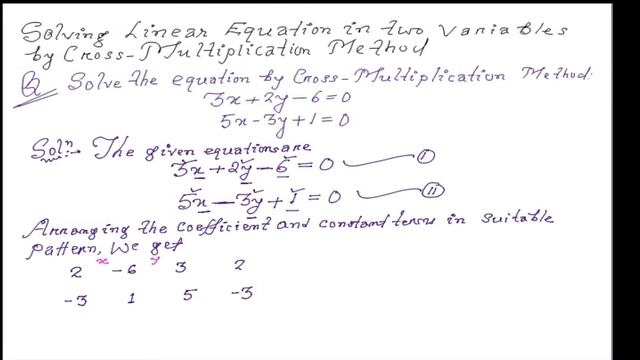 Solving Linear Equation in two Variables
by Cross-Multiplication Method
Q Solve the equation by Cross-Multiplication Method:
3x+2y-6=0
5x-3y+1=0
Solⁿ:- The given equations are
3x+2y-6=0 (i)
5x-3y+1=0 (ii)
Arranging the coefficient and constant terms in suitable
pattern, We get
x y
2 -6 3 2
-3 1 5 -3